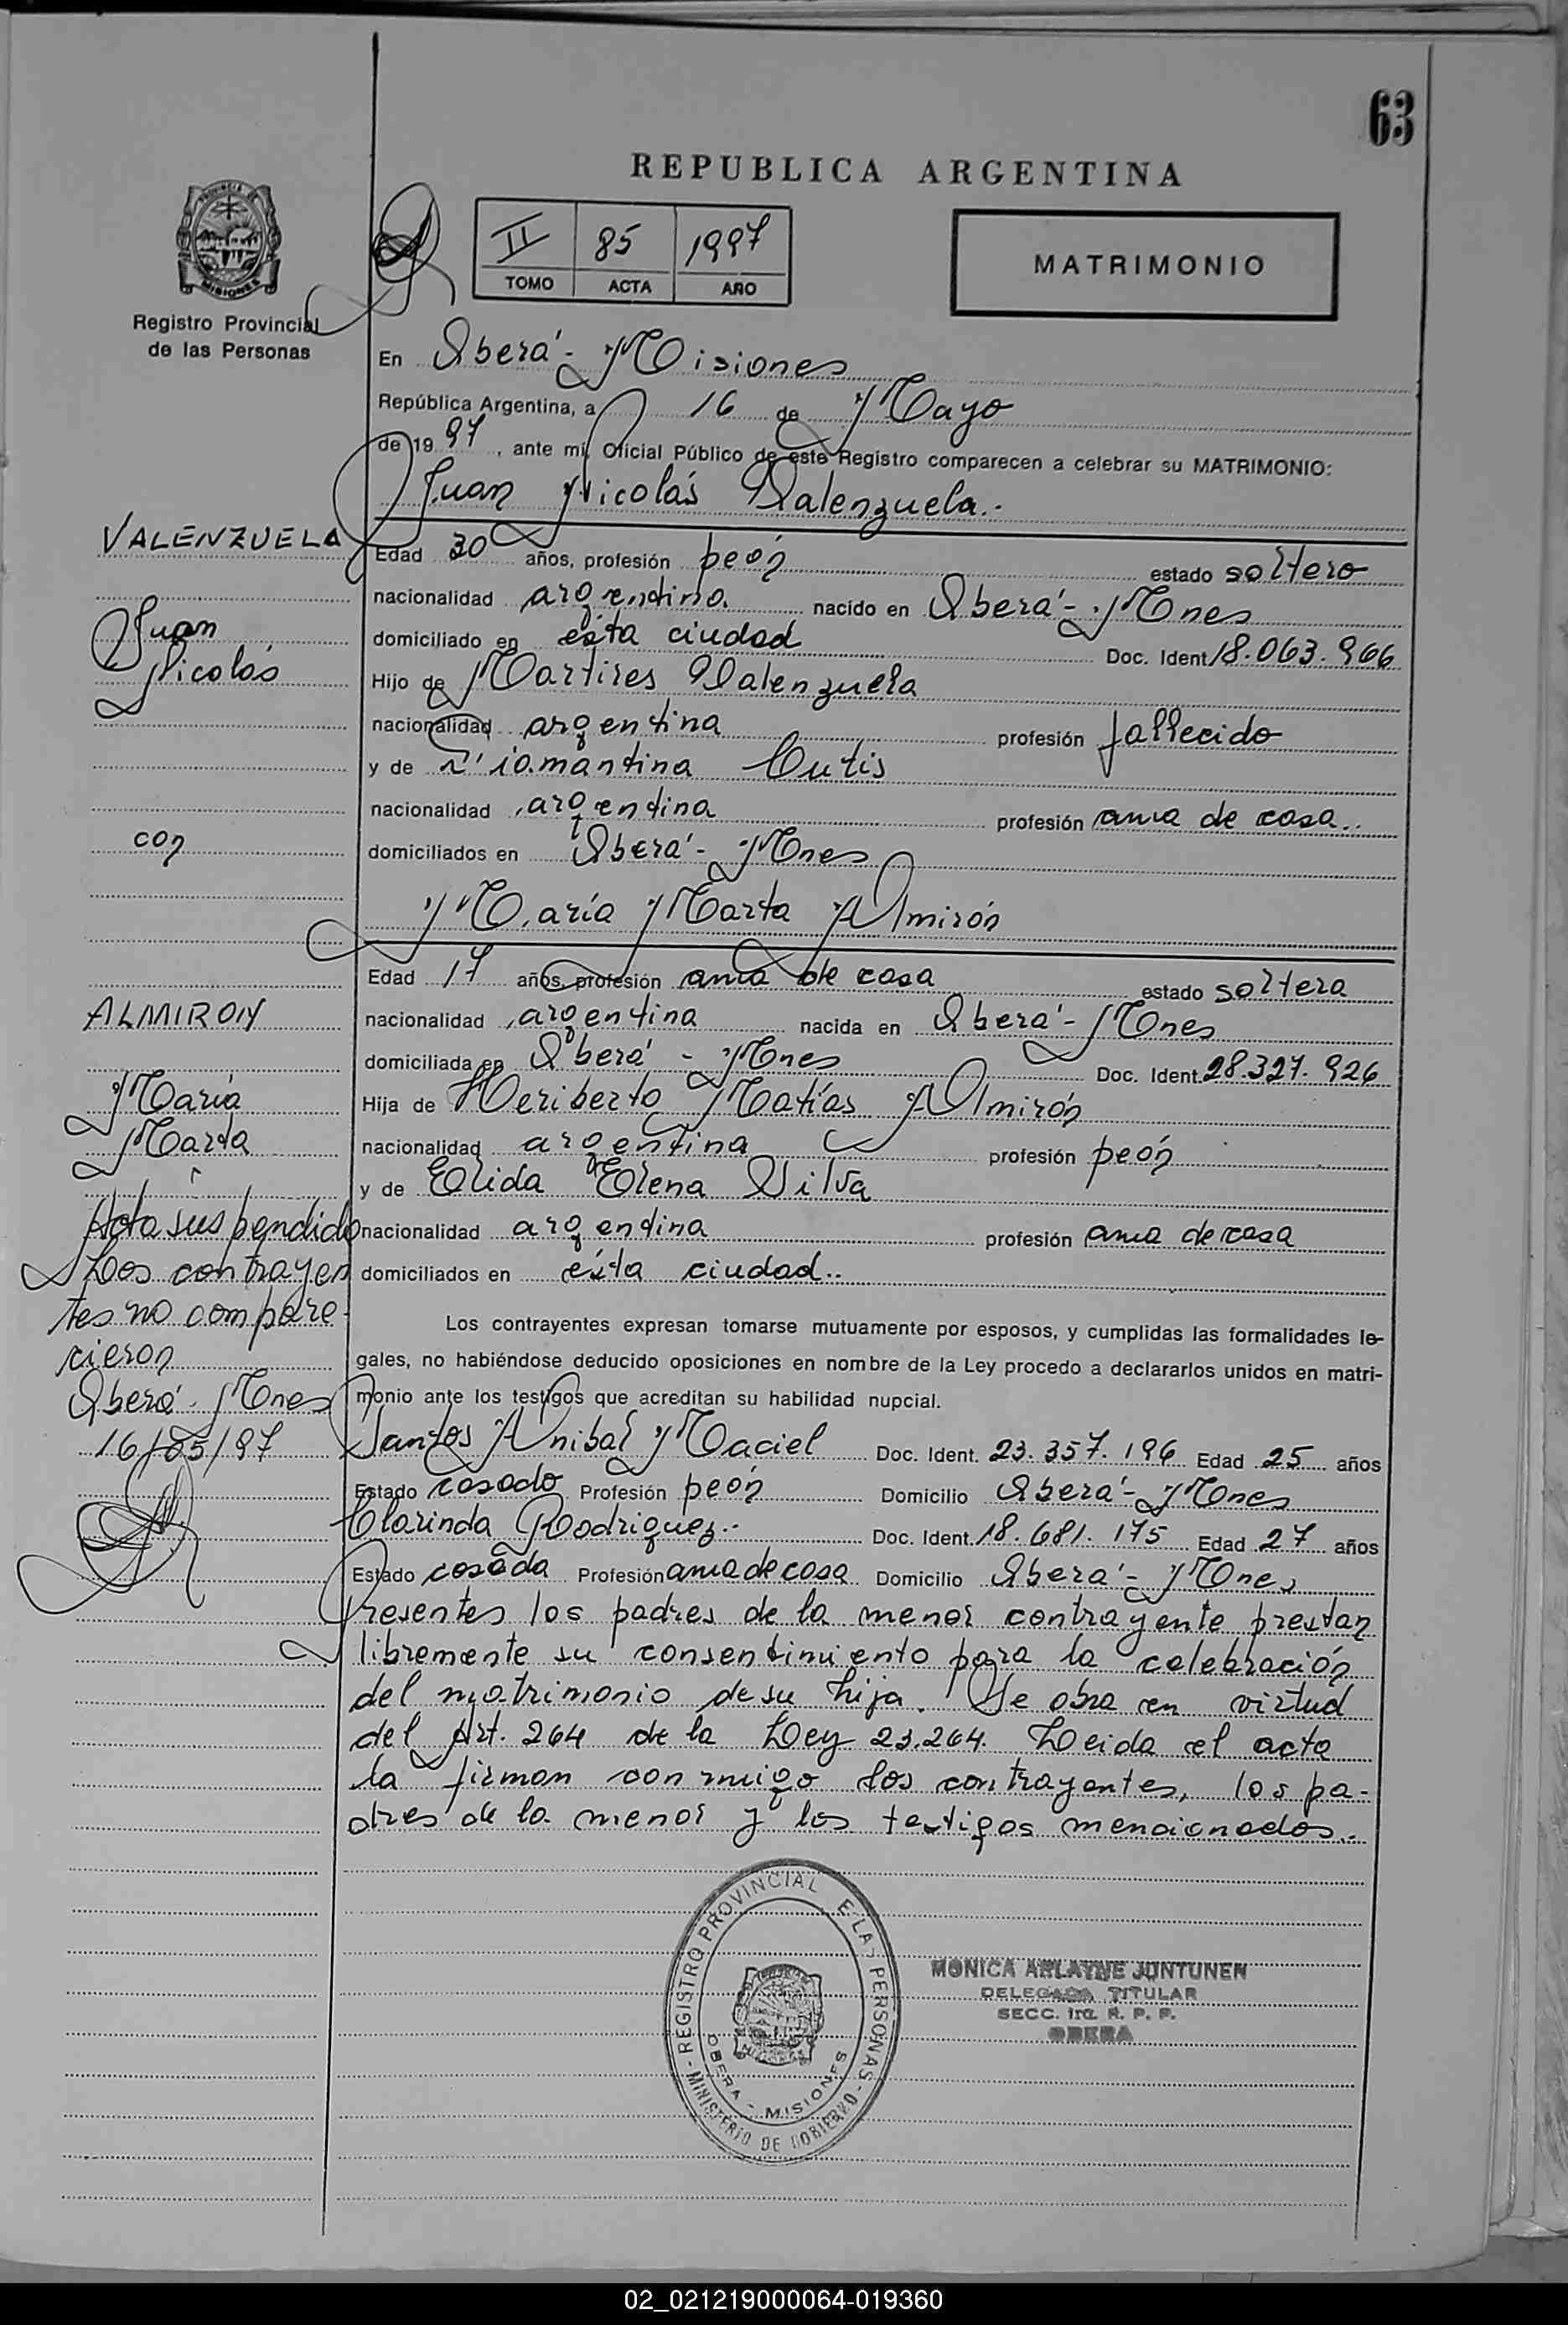 63
REPUBLICA ARGENTINA
II 85 1997
TOMO ACTA AÑO
MATRIMONIO
PROVINCIA DE MISIONES
Registro Provincial
de las Personas
En Oberá - Misiones
República Argentina, a 16 de Mayo
de 1997, ante mí, Oficial Público de este Registro comparecen a celebrar su MATRIMONIO:
Juan Nicolás Valenzuela.-
VALENZUELA
Juan
Nicolás
con
ALMIRON
María
Marta
Acta suspendida
Los contrayen
tes no compare-
cieron
Oberá - Mnes
16/05/97
Edad 30 años, profesión peón estado soltero
nacionalidad argentina nacido en Oberá - Mnes
domiciliado en ésta ciudad Doc. Ident. 18.063.966
Hijo de Martires Valenzuela
nacionalidad argentina profesión fallecido
y de Diamantina Cutis
nacionalidad argentina profesión ama de casa..
domiciliados en Oberá - Mnes
María Marta Almirón
Edad 17 años, profesión ama de casa estado soltera
nacionalidad argentina nacida en Oberá - Mnes
domiciliada en Oberá - Mnes Doc. Ident. 28.327.926
Hija de Heriberto Matías Almirón
nacionalidad argentina profesión peón
y de Elida Elena Silva
nacionalidad argentina profesión ama de casa
domiciliados en ésta ciudad..
Los contrayentes expresan tomarse mutuamente por esposos, y cumplidas las formalidades le-
gales, no habiéndose deducido oposiciones en nombre de la Ley procedo a declararlos unidos en matri-
monio ante los testigos que acreditan su habilidad nupcial.
Santos Anibal Maciel Doc. Ident. 23.357.196 Edad 25 años
Estado casado Profesión peón Domicilio Oberá - Mnes
Clarinda Rodriguez.- Doc. Ident. 18.681.175 Edad 27 años
Estado casada Profesión ama de casa Domicilio Oberá - Mnes
Presentes los padres de la menor contrayente prestan
libremente su consentimiento para la celebración
del matrimonio de su hija. Se obra en virtud
del Art. 264 de la Ley 23.264. Leida el acta
la firman conmigo los contrayentes, los pa-
dres de la menor y los testigos mencionados.-
REGISTRO PROVINCIAL E LAS PERSONAS - MINISTERIO DE GOBIERNO -
OBERA - MISIONES
MONICA ARLAYNE JUNTUNEN
DELEGADA TITULAR
SECC. 1ra. R. P. P.
OBERA
02_021219000064-019360